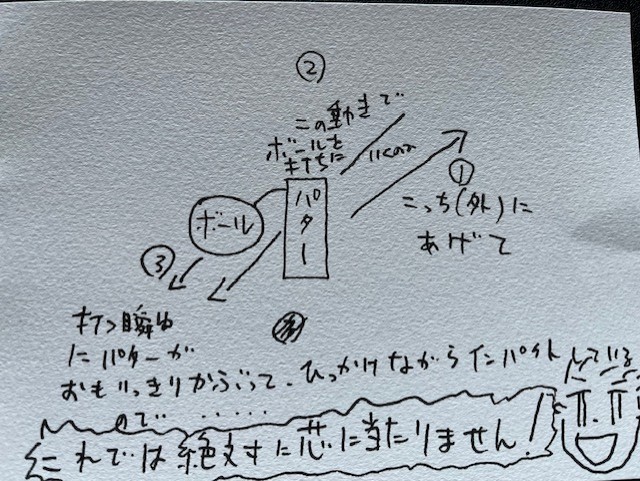 ②
この動きで
ボールを
打ちに
いくのみ
①
こっち(外)に
あげて
パター
ボール
③
打つ瞬間
にパターが
おもいっきりかぶって、ひっかけながらインパクトしている
ので・・・・・
これでは絶対に芯に当たりません!